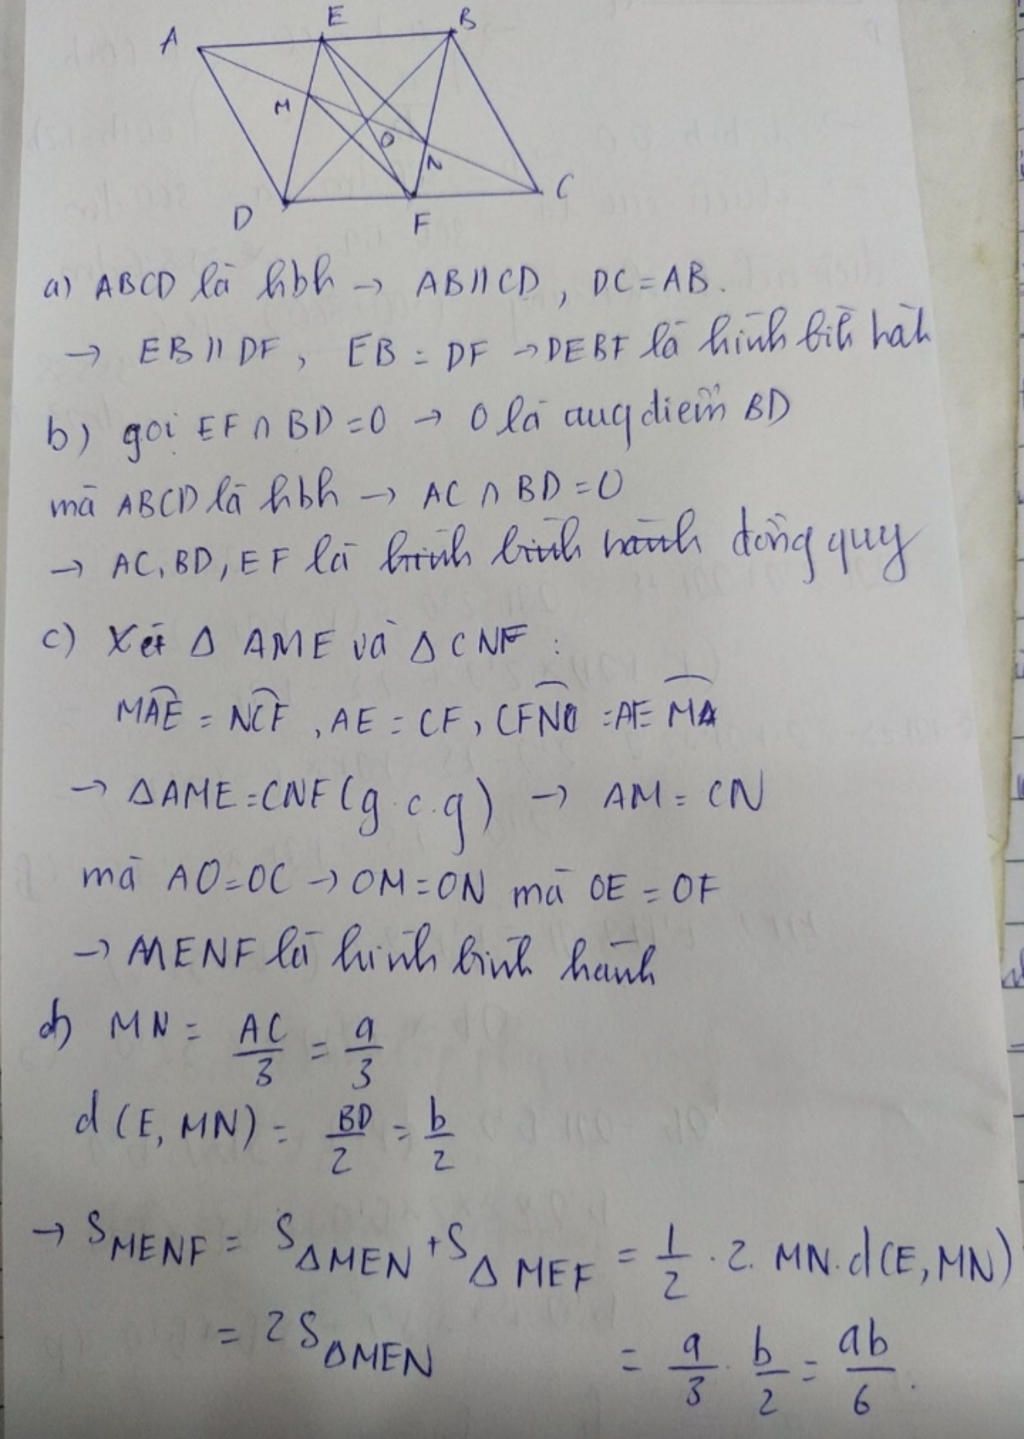 A E B
M
O
N
D F C
a) ABCD là hbh → AB // CD, DC = AB.
→ EB // DF, EB = DF → DEBF là hình bình hành
b) gọi EF ∩ BD = O → O là trung điểm BD
mà ABCD là hbh → AC ∩ BD = O
→ AC, BD, EF là hình bình hành đồng quy
c) Xét Δ AME và Δ CNF :
MAE = NCF, AE = CF, CFN = AEM
→ ΔAME = CNF (g.c.g) → AM = CN
mà AO = OC → OM = ON mà OE = OF
→ MENF là hình bình hành
d) MN = AC/3 = a/3
d(E, MN) = BD/2 = b/2
→ S MENF = S ΔMEN + S ΔMEF = 1/2 . 2. MN. d(E, MN)
= 2S ΔMEN = a/3 . b/2 = ab/6 .